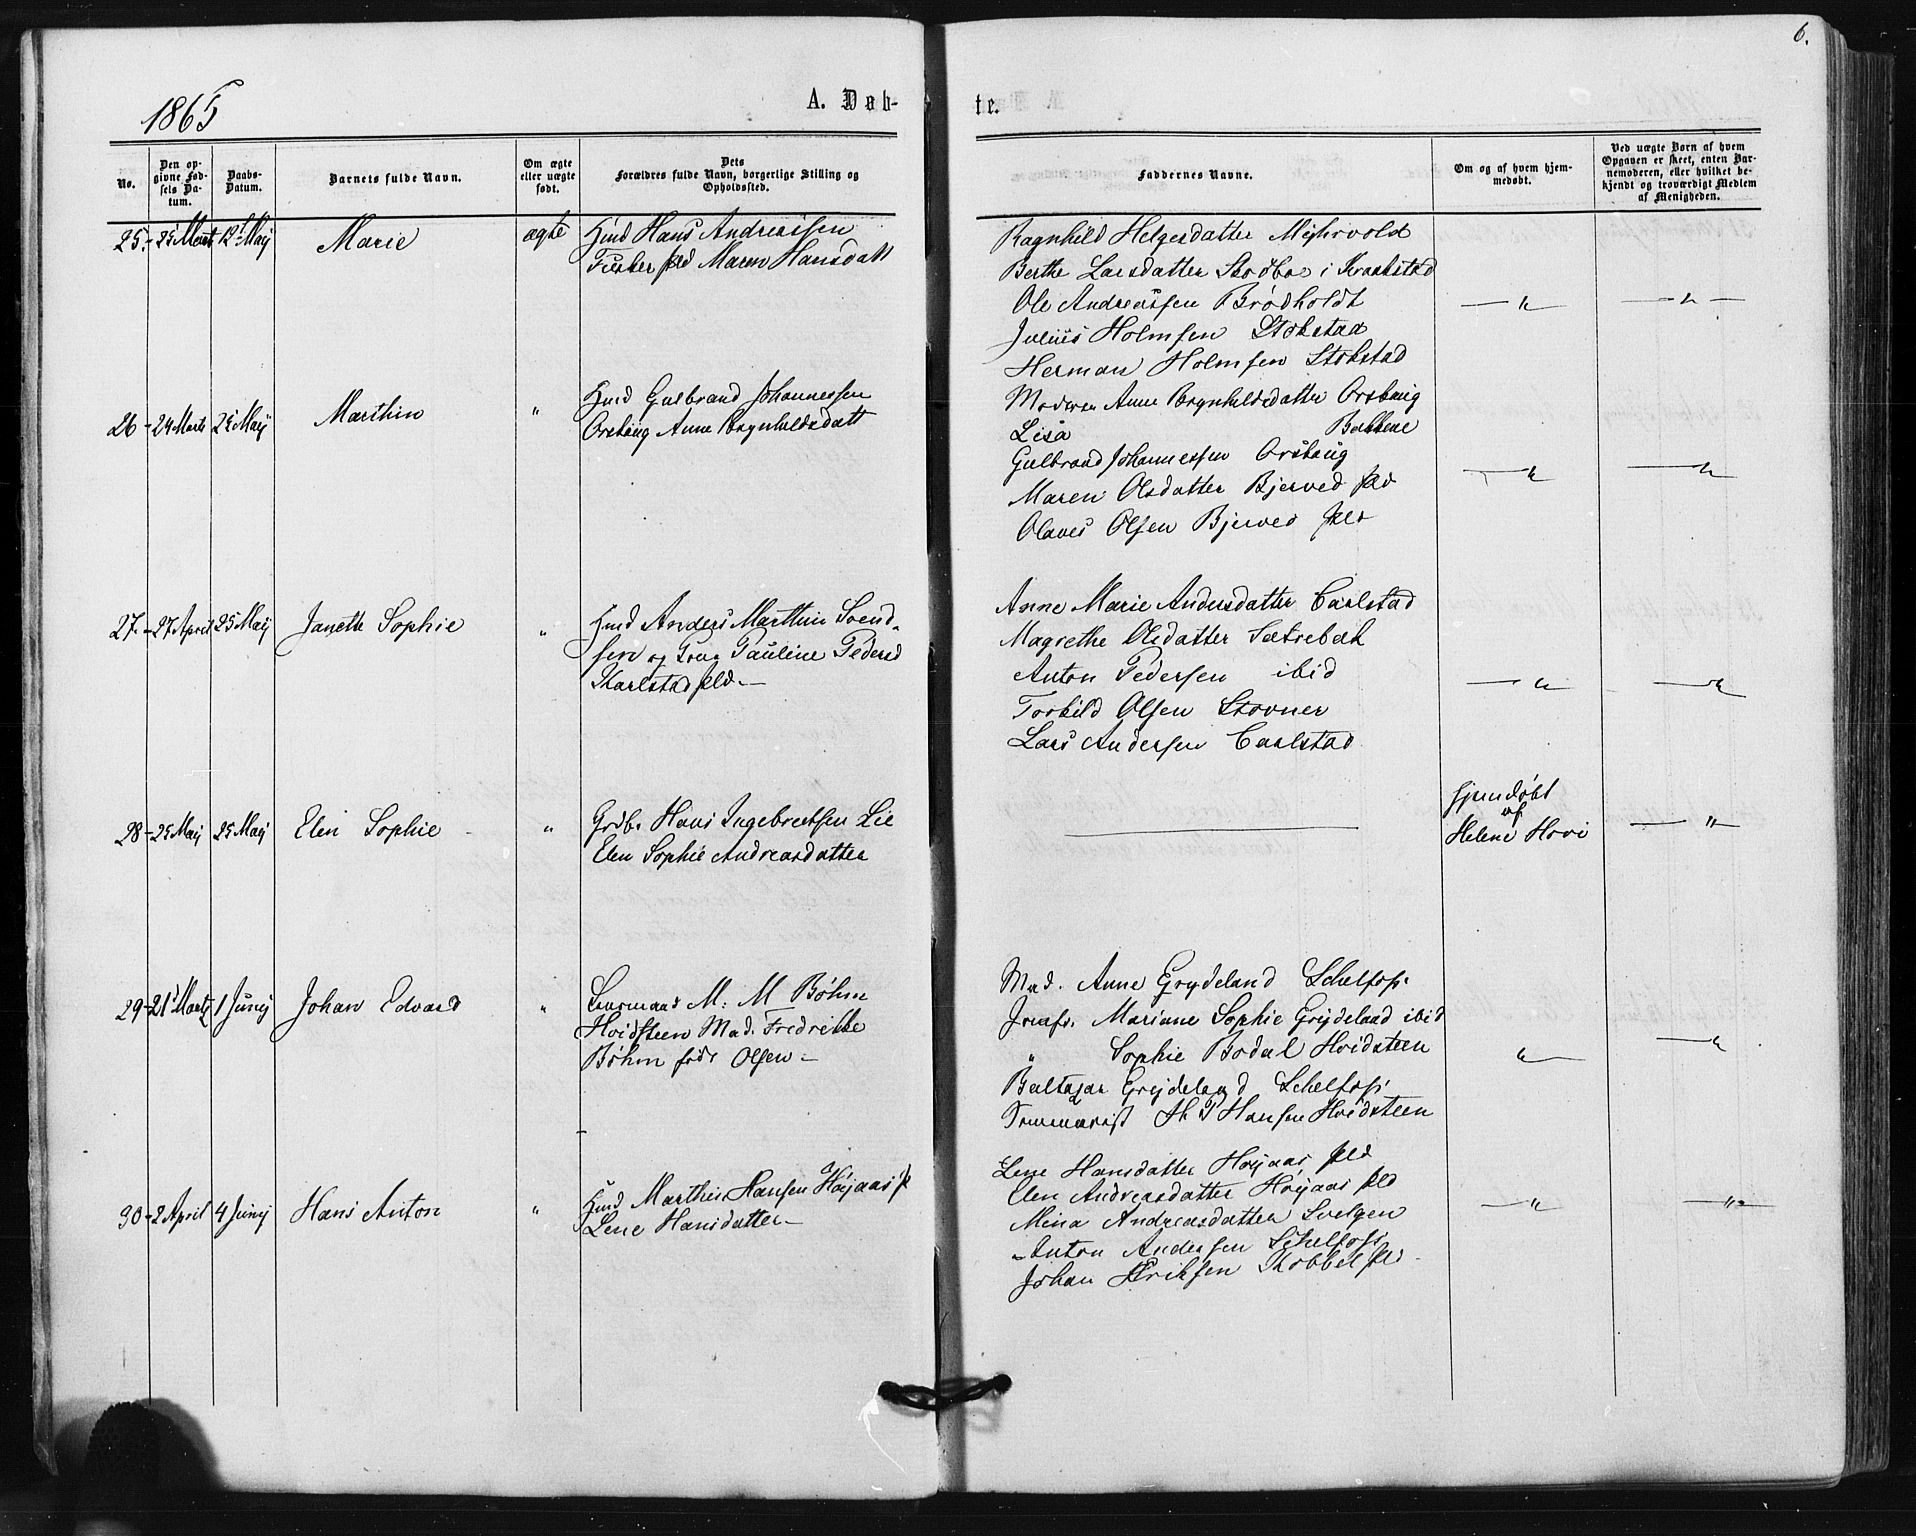 6.
1865
A. Døb-
te.
No.
Den op-
givne Fød-
sels Da-
tum.
Daabs-
Datum.
Barnets fulde Navn.
Om ægte
eller uægte
født.
Dets
Forældres fulde Navn, borgerlige Stilling og
Opholdssted.
Faddernes Navne.
Om og af hvem hjem-
medøbt.
Ved uægte Børn af hvem
Opgaven er skeet, enten Bar-
nemoderen, eller hvilket be-
kjendt og troværdigt Medlem
af Menigheden.
25.
Marts
12 Maij
Marie
ægte
Hmd Hans Andreassen
pld Maren Hansdatt
Ragnhild Helgesdatter
Berthe Larsdatter i Kraakstad
Ole Andreassen Brødholdt
Julius Holmsen Stokstad
Herman Holmsen Stokstad
26 - 24 Marts
25 Maij
Marthin
"
Hmd Gulbrand Johannessen
Orsbaug Anne Brynhildsdatt
Moderen Anne Brynhildsdatter Orsbaug
Lisa Bakkene
Gulbrand Johannessen Orsbaug
Maren Olsdatter Bjerved pld
Olaves Olsen Bjerved pld
27. - 27 April
25 Maij
Janette Sophie
"
Hmd Anders Marthin Svend-
sen og Kone Pauline Pedersd
Karlstad pld. -
Anne Marie Andersdatter Carlstad
Magrethe Olsdatter Sætrebak
Anton Pedersen ibid
Torkild Olsen Stovner
Lars Andersen Carlstad
28 - 25 Maij
25 Maij
Elen Sophie
"
Grdbr Hans Ingebretsen Lie
Elen Sophie Andreasdatter
Hjemdøbt
af
Helene Hovi
"
29 - 21 Marts
1 Junij
Johan Edvard
"
M. M Bøhm
Hvidsteen Mad. Fredrikke
Bøhm født Olsen -
Mad. Anne Grydeland Schelfoss
Jomfr. Mariane Sophie Grydeland ibid
" Sophie Bodal Hvidsteen
Baltazar Grydeland Schelfoss
Hansen Hvidsteen
30 - 2 April
4 Junij
Hans Anton
"
Hmd Marthin Hansen Høyaas p
Lene Hansdatter -
Lene Hansdatter Høyaas pld
Elen Andreasdatter Høyaas pld
Mina Andreasdatter Svelgen
Anton Andersen Schelfoss
Johan Eriksen Skobbel pld
"
"